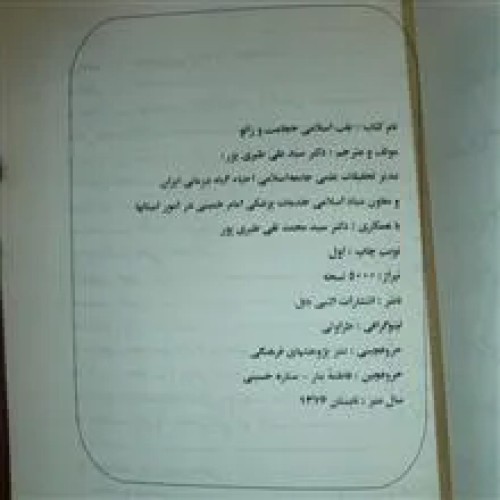 نام کتاب : طب اسلامی حجامت و زالو
مولف و مترجم : دکتر سید علی طبری پور :
مدیر تحقیقات علمی جامعه اسلامی احیاء گیاه درمانی ایران
و معاون ستاد اسلامی خدمات پزشکی امام خمینی در امور استانها
با همکاری : دکتر سید محمد تقی طبری پور
نوبت چاپ : اول
تیراژ : ۵۰۰۰ نسخه
ناشر : انتشارات
لیتوگرافی :
حروفچینی : نشر پژوهشهای فرهنگی
حروفچین : فاطمه - ستاره حسینی
سال نشر : تابستان ۱۳۷۶